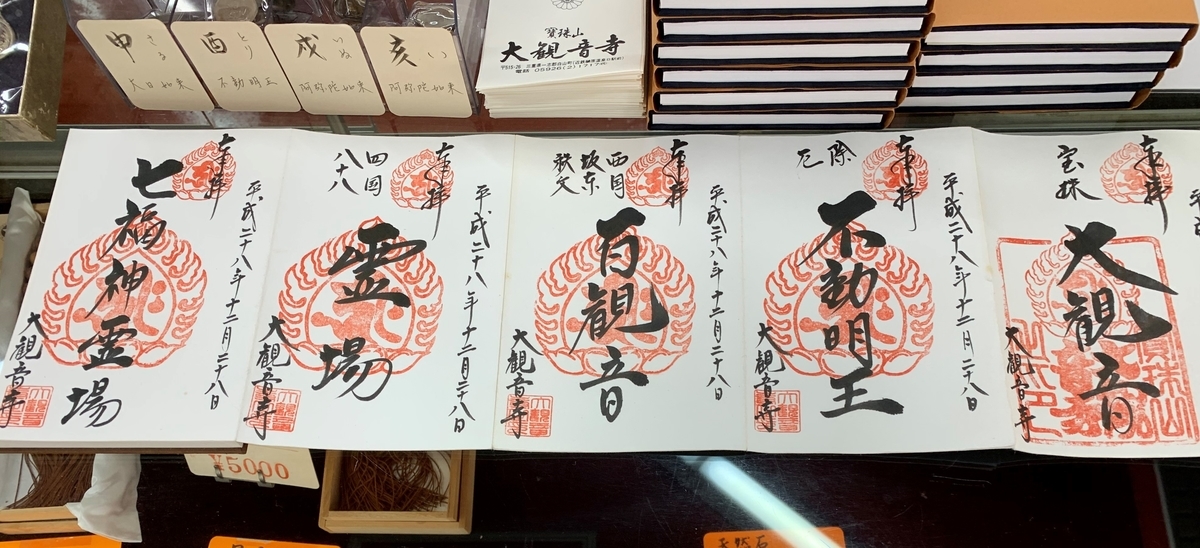 申 さる
大日如来
酉 とり
不動明王
戌 いぬ
阿弥陀如来
亥 い
阿弥陀如来
寳珠山
大観音寺
奉拝
宝珠
大観音
大観音寺
奉拝
平成二十八年十二月二十八日
除厄
不動明王
大観音寺
奉拝
平成二十八年十二月二十八日
西国
坂東
秩父
百観音
大観音寺
奉拝
平成二十八年十二月二十八日
四国
八十八
霊場
大観音寺
奉拝
平成二十八年十二月二十八日
七福神霊場
大観音寺
¥5000
天然石